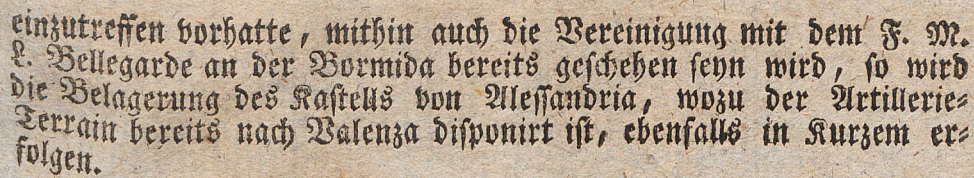 einzutreffen vorhatte, mithin auch die Vereinigung mit dem F. M.
L. Bellegarde an der Bormida bereits geschehen seyn wird, so wird
die Belagerung des Kastells von Alessandria, wozu der Artillerie-
Terrain bereits nach Valenza disponirt ist, ebenfalls in Kurzem er-
folgen.